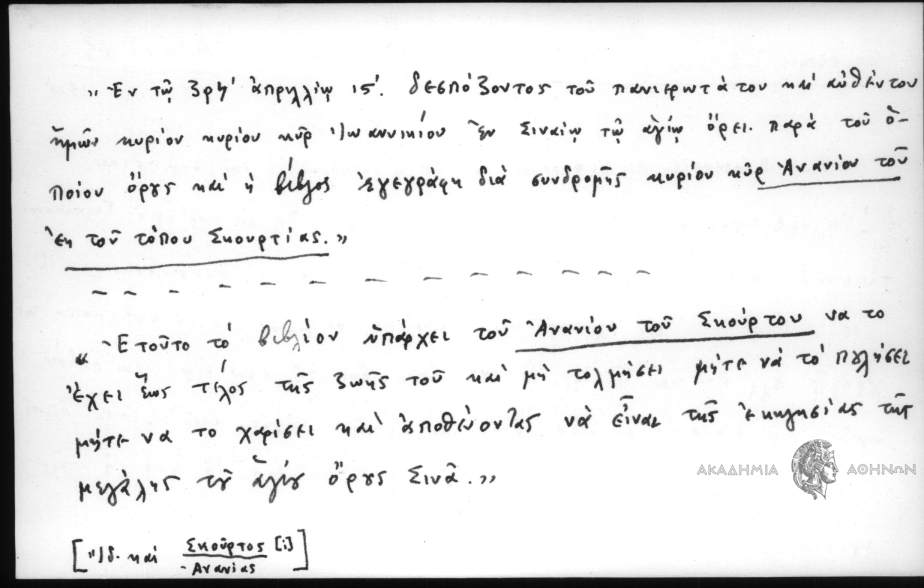 „Ἐν τῷ ζρҁ' ἀπριλλίῳ ις'. δεσπόζοντος τοῦ πανιερωτάτου καὶ αὐθέντου
ἡμῶν κυρίου κυρίου κῦρ Ἰωαννικίου ἐν Σιναίῳ τῷ ἁγίῳ ὄρει. παρὰ τοῦ ὁ-
ποίου ὄρους καὶ ἡ βίβλος ἐγεγράφη διὰ συνδρομῆς κυρίου κῦρ Ἀνανίου τοῦ
ἐκ τοῦ τόπου Σκουρτίας.”
„Ἐτοῦτο τὸ βιβλίον ὑπάρχει τοῦ Ἀνανίου τοῦ Σκούρτου να το
ἔχει ἕως τέλος τῆς ζωῆς τοῦ καὶ μὴ τολμήσει μήτε νὰ τὸ πυλήσει
μήτε να το χαρίσει καὶ ἀποθένοντας νὰ εἶναι τῆς ἐκκλησίας τῆς
μεγάλης τοῦ ἁγίου ὄρους Σινᾶ.”
ΑΚΑΔΗΜΙΑ ΑΘΗΝΩΝ
[”Ἰδ. καὶ Σκοῦρτος [i]
Ἀνανίας]